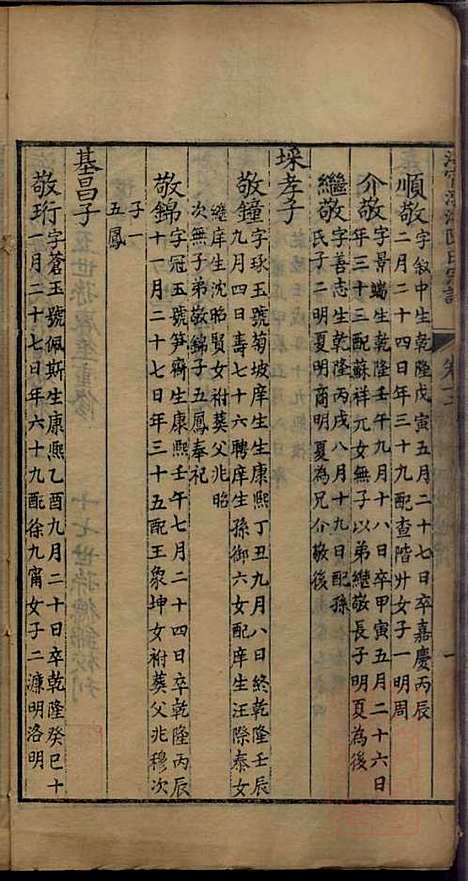 海寧渤海陳氏宗譜 卷二
順敬字叙中生乾隆戊寅五月二十七日卒嘉慶丙辰
二月二十四日年三十九配查階廾女子一明周
介敬字景端生乾隆壬午九月十八日卒甲寅五月二十六日
年三十三配蘇祥元女無子以弟繼敬長子明夏為後
繼敬字善志生乾隆丙戌八月十九日配孫
氏子二明夏明商明夏為兄介敬後
埰孝子
敬鐘字球玉號菊坡庠生生康熙丁丑九月八日終乾隆壬辰
九月四日壽七十六聘庠生孫御六女配庠生汪際泰女
繼庠生沈昭賢女祔葬父兆昭
次無子弟敬錦子五鳳奉祀
敬錦字冠五號笋齋生康熙壬午七月二十四日卒乾隆丙辰
十一月二十七日年三十五配王象坤女祔葬父兆穆次
子一
五鳳
基昌子
敬珩字蒼玉號佩斯生康熙乙酉九月二十日卒乾隆癸巳十
一月二十七日年六十九配徐九甯女子二濂明洛明